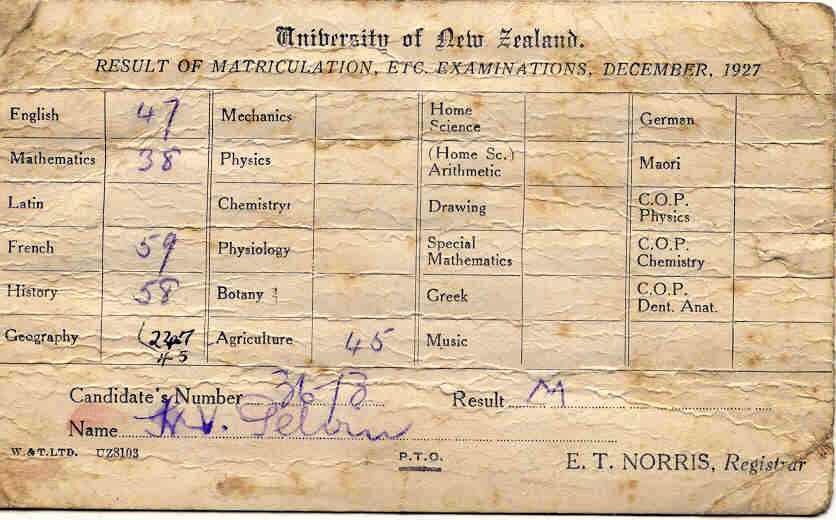 University of New Zealand.
RESULT OF MATRICULATION, ETC. EXAMINATIONS, DECEMBER, 1927
English 47 Mechanics Home Science German
Mathematics 38 Physics (Home Sc.) Arithmetic Maori
Latin Chemistry Drawing C.O.P. Physics
French 59 Physiology Special Mathematics C.O.P. Chemistry
History 58 Botany Greek C.O.P. Dent. Anat.
Geography 45 Agriculture 45 Music
Candidate's Number 3673 Result M
Name V.
W. & T. LTD. UZ8103 P.T.O. E. T. NORRIS, Registrar